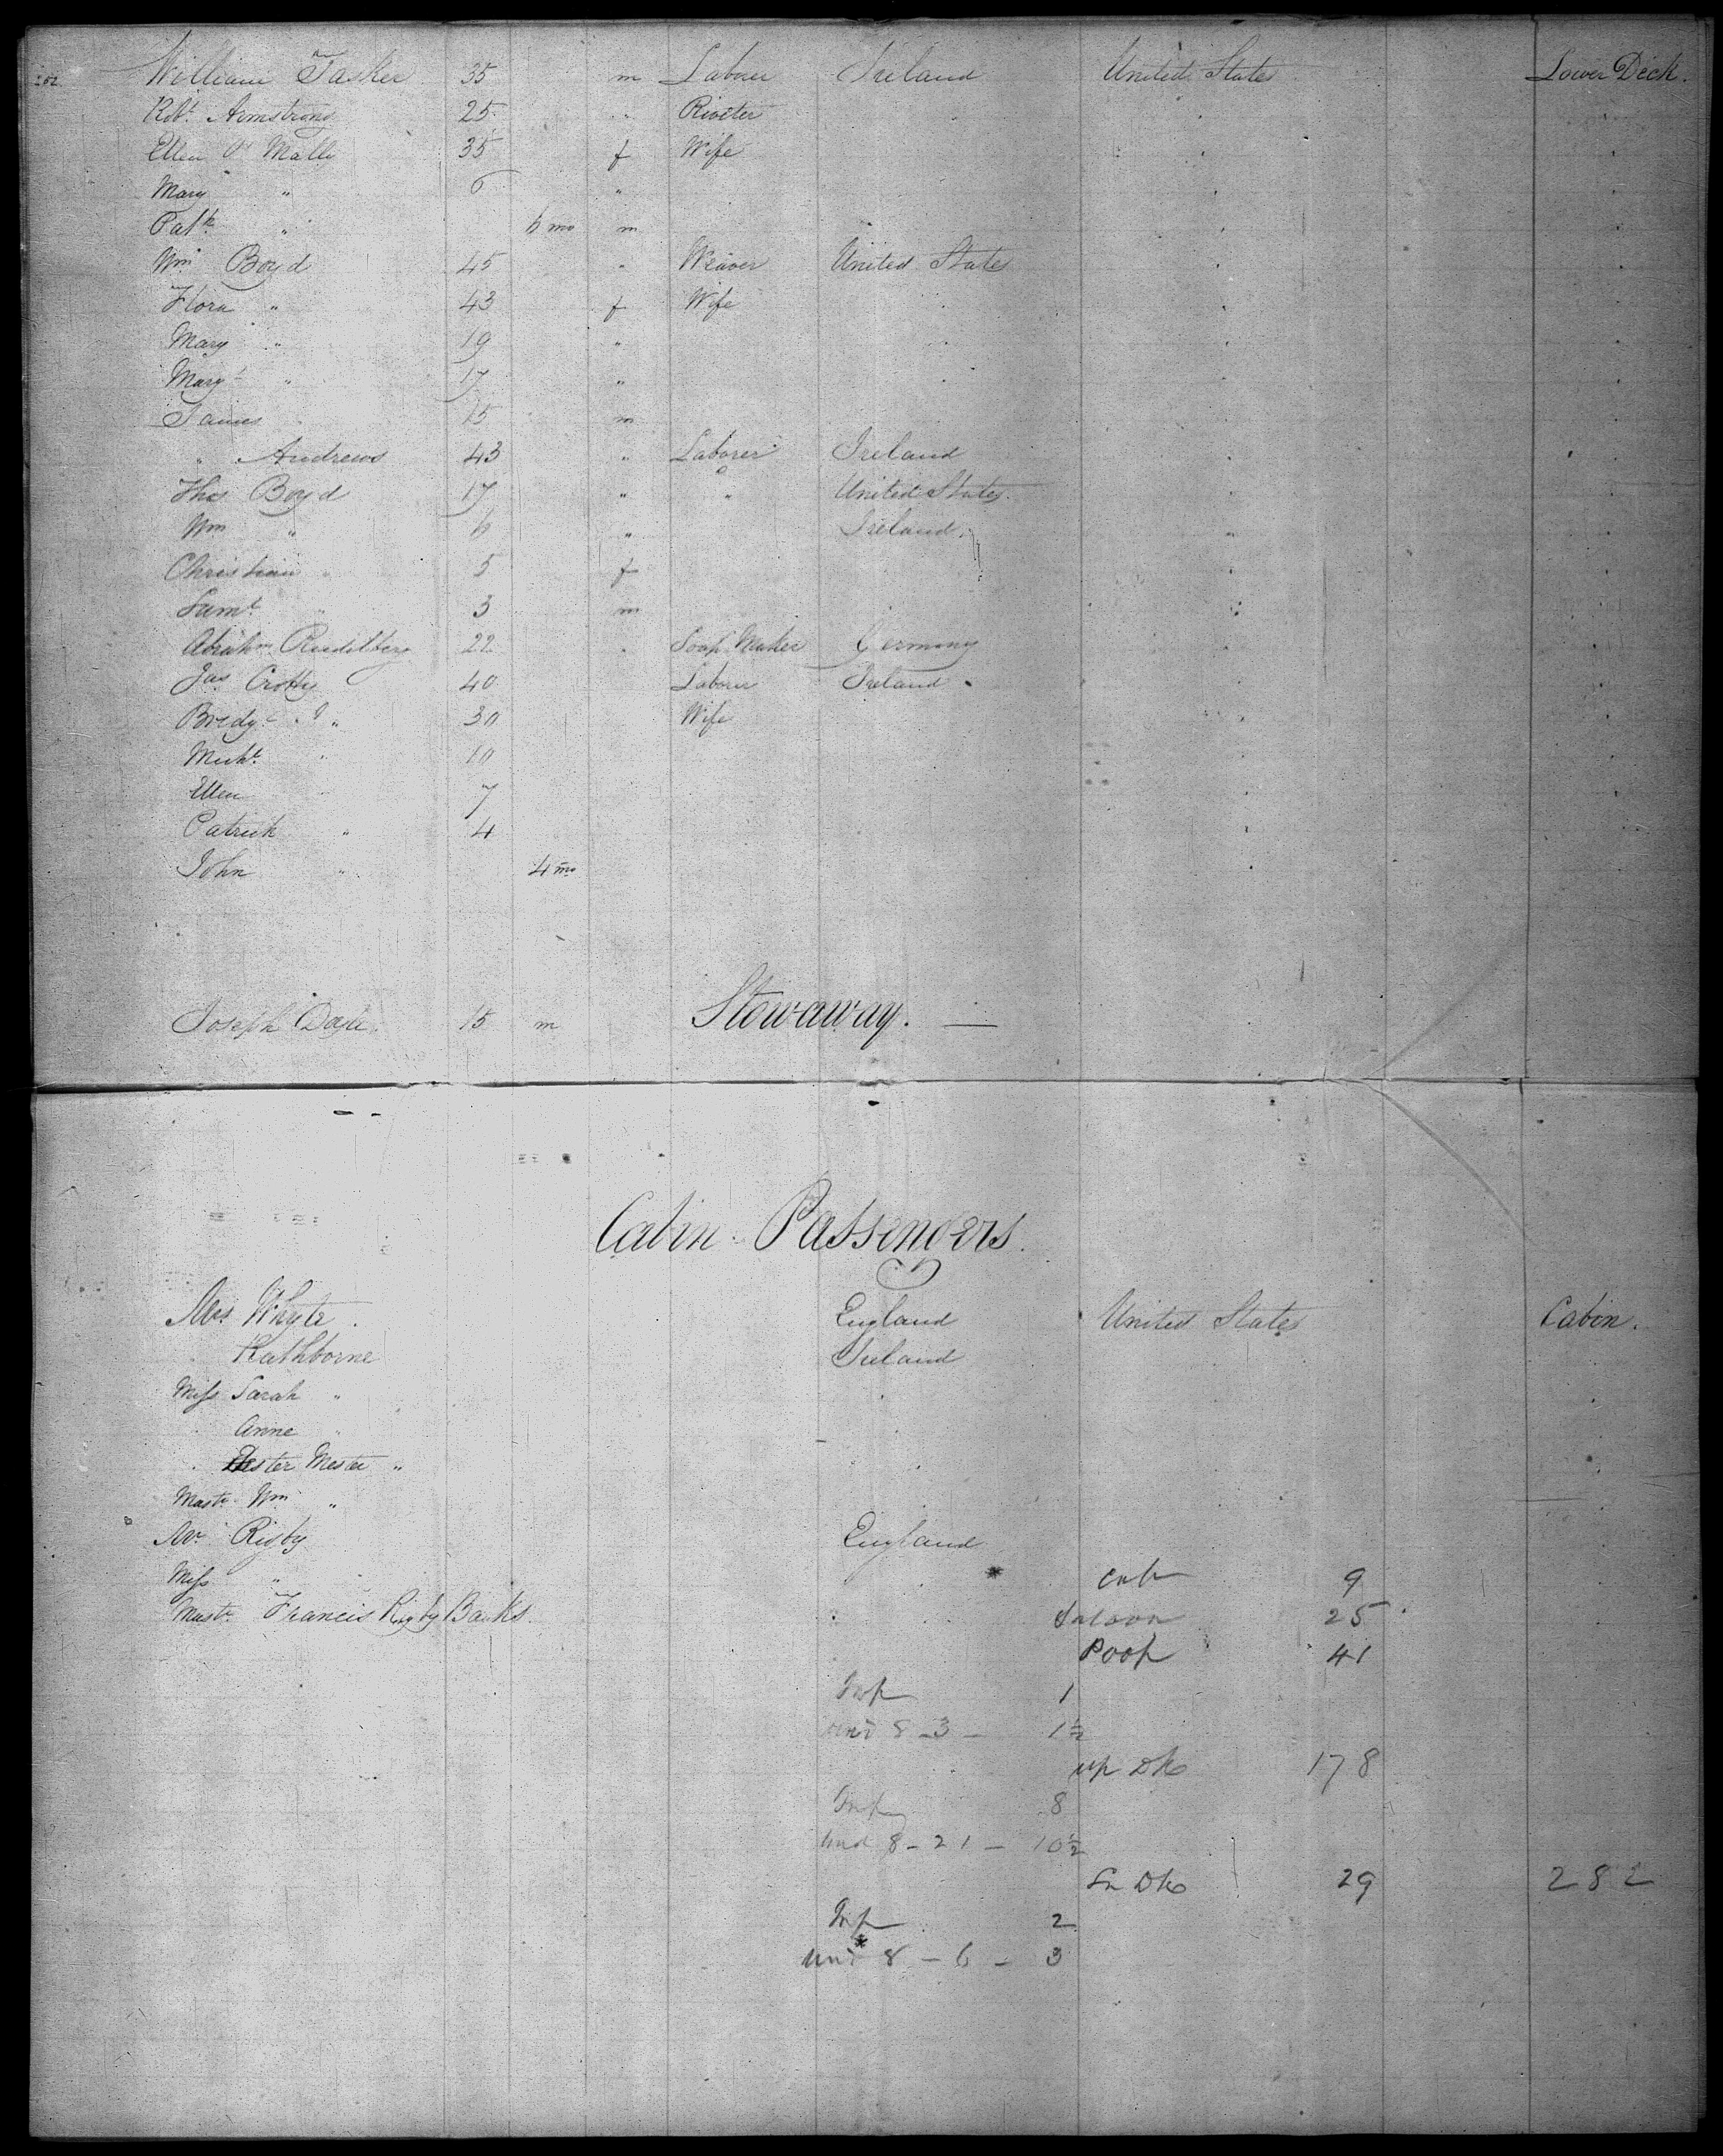 202 William Tasker 35 m Laborer Ireland United States Lower Deck.
Robt. Armstrong 25 " Riveter
Ellen O' Mally 35 f Wife
Mary " 6 "
Patk. " 6 mo m
Wm Boyd 45 " Weaver United States
Flora " 43 f Wife
Mary " 19 "
Margt " 17 "
James 15 m
" Andrews 43 " Laborer Ireland
Thos Boyd 17 " " United States.
Wm " 6 " Ireland
Christian " 5 f
Saml. " 3 m
Abrahm 22 Soap Maker Germany
Jas Crotty 40 Laborer Ireland
Bridgt " 30 Wife
Michl. " 10
Ellen 7
Patrick " 4
John " 4 mo
Joseph Doyle. 15 m Stowaway. —
Cabin Passengers.
Mrs Whyte. England United States Cabin.
" Rathborne Ireland
Miss Sarah "
" Anne "
" Hester "
Mastr. Wm "
Mr. Rigby England
Miss "
Mastr. Francis Rigby Banks.
Cab 9
Saloon 25
Poop 41
Inf 1
und 8 – 3 – 1½
up Dk 178
Inf 8
und 8 – 21 – 10½
Lr Dk 29 282
Inf 2
und 8 – 6 – 3